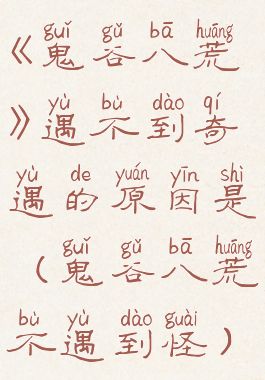 guǐ gǔ bā huāng
《鬼谷八荒
yù bù dào qí
》遇不到奇
yù de yuán yīn shì
遇的原因是
guǐ gǔ bā huāng
（鬼谷八荒
bù yù dào guài
不遇到怪）